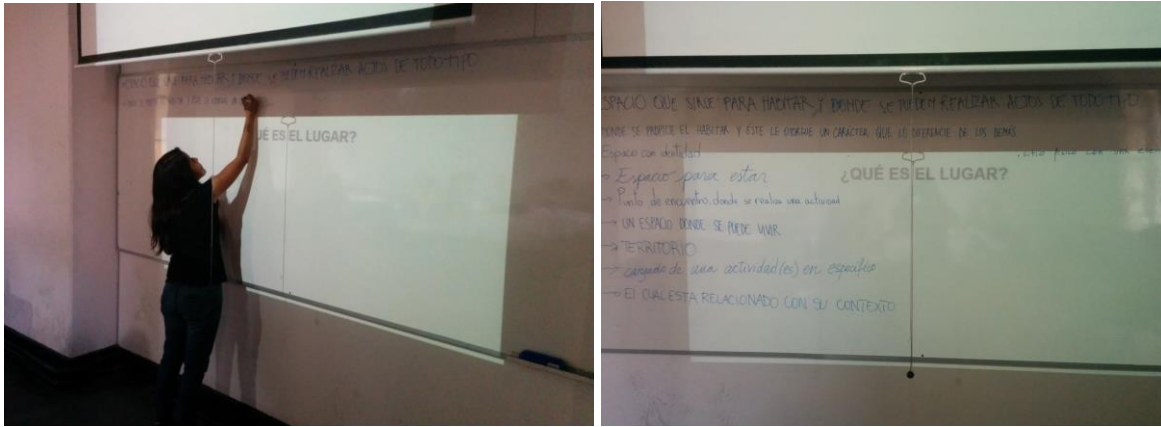 ESPACIO QUE SIRVE PARA HABITAR, Y DONDE SE PUEDEN REALIZAR ACTOS DE TODO TIPO
¿QUÉ ES EL LUGAR?
ESPACIO QUE SIRVE PARA HABITAR, Y DONDE SE PUEDEN REALIZAR ACTOS DE TODO TIPO
DONDE SE PROPICIE EL HABITAR Y ESTE LE OTORGUE UN CARACTER, QUE LO DIFERENCIE DE LOS DEMÁS
Espacio con identidad
sitio físico con una
→ Espacio para estar
¿QUÉ ES EL LUGAR?
→ Punto de encuentro, donde se realiza una actividad
→ UN ESPACIO DONDE SE PUEDE VIVIR
→ TERRITORIO
→ cargado de una actividad(es) en específico
→ El CUAL ESTA RELACIONADO CON SU CONTEXTO